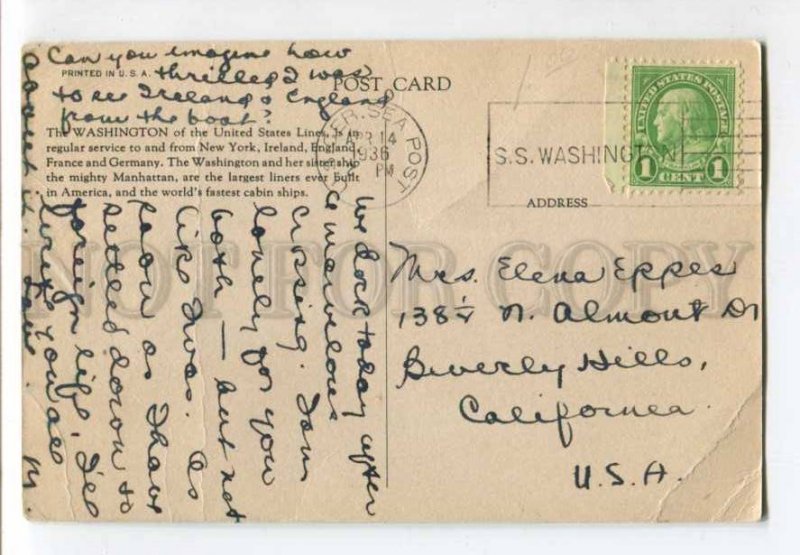 Can you imagine how
PRINTED IN U. S. A.
thrilled I was
to see Ireland & England
from the boat?
POST CARD
The WASHINGTON of the United States Lines, is in
regular service to and from New York, Ireland, England,
France and Germany. The Washington and her sister ship
the mighty Manhattan, are the largest liners ever built
in America, and the world's fastest cabin ships.
We dock today after
a marvelous
crossing. Am
lonely for you
both — but not
like I was. As
soon as I have
settled down to
foreign life, I'll
write you all
SEA POST
APR 14
1936
PM
S.S. WASHINGTON
UNITED STATES POSTAGE
1 CENT 1
ADDRESS
Mrs. Elena Eppes
138½ N. Almont Dr
Beverly Hills,
California
U.S.A.
NOT FOR COPY